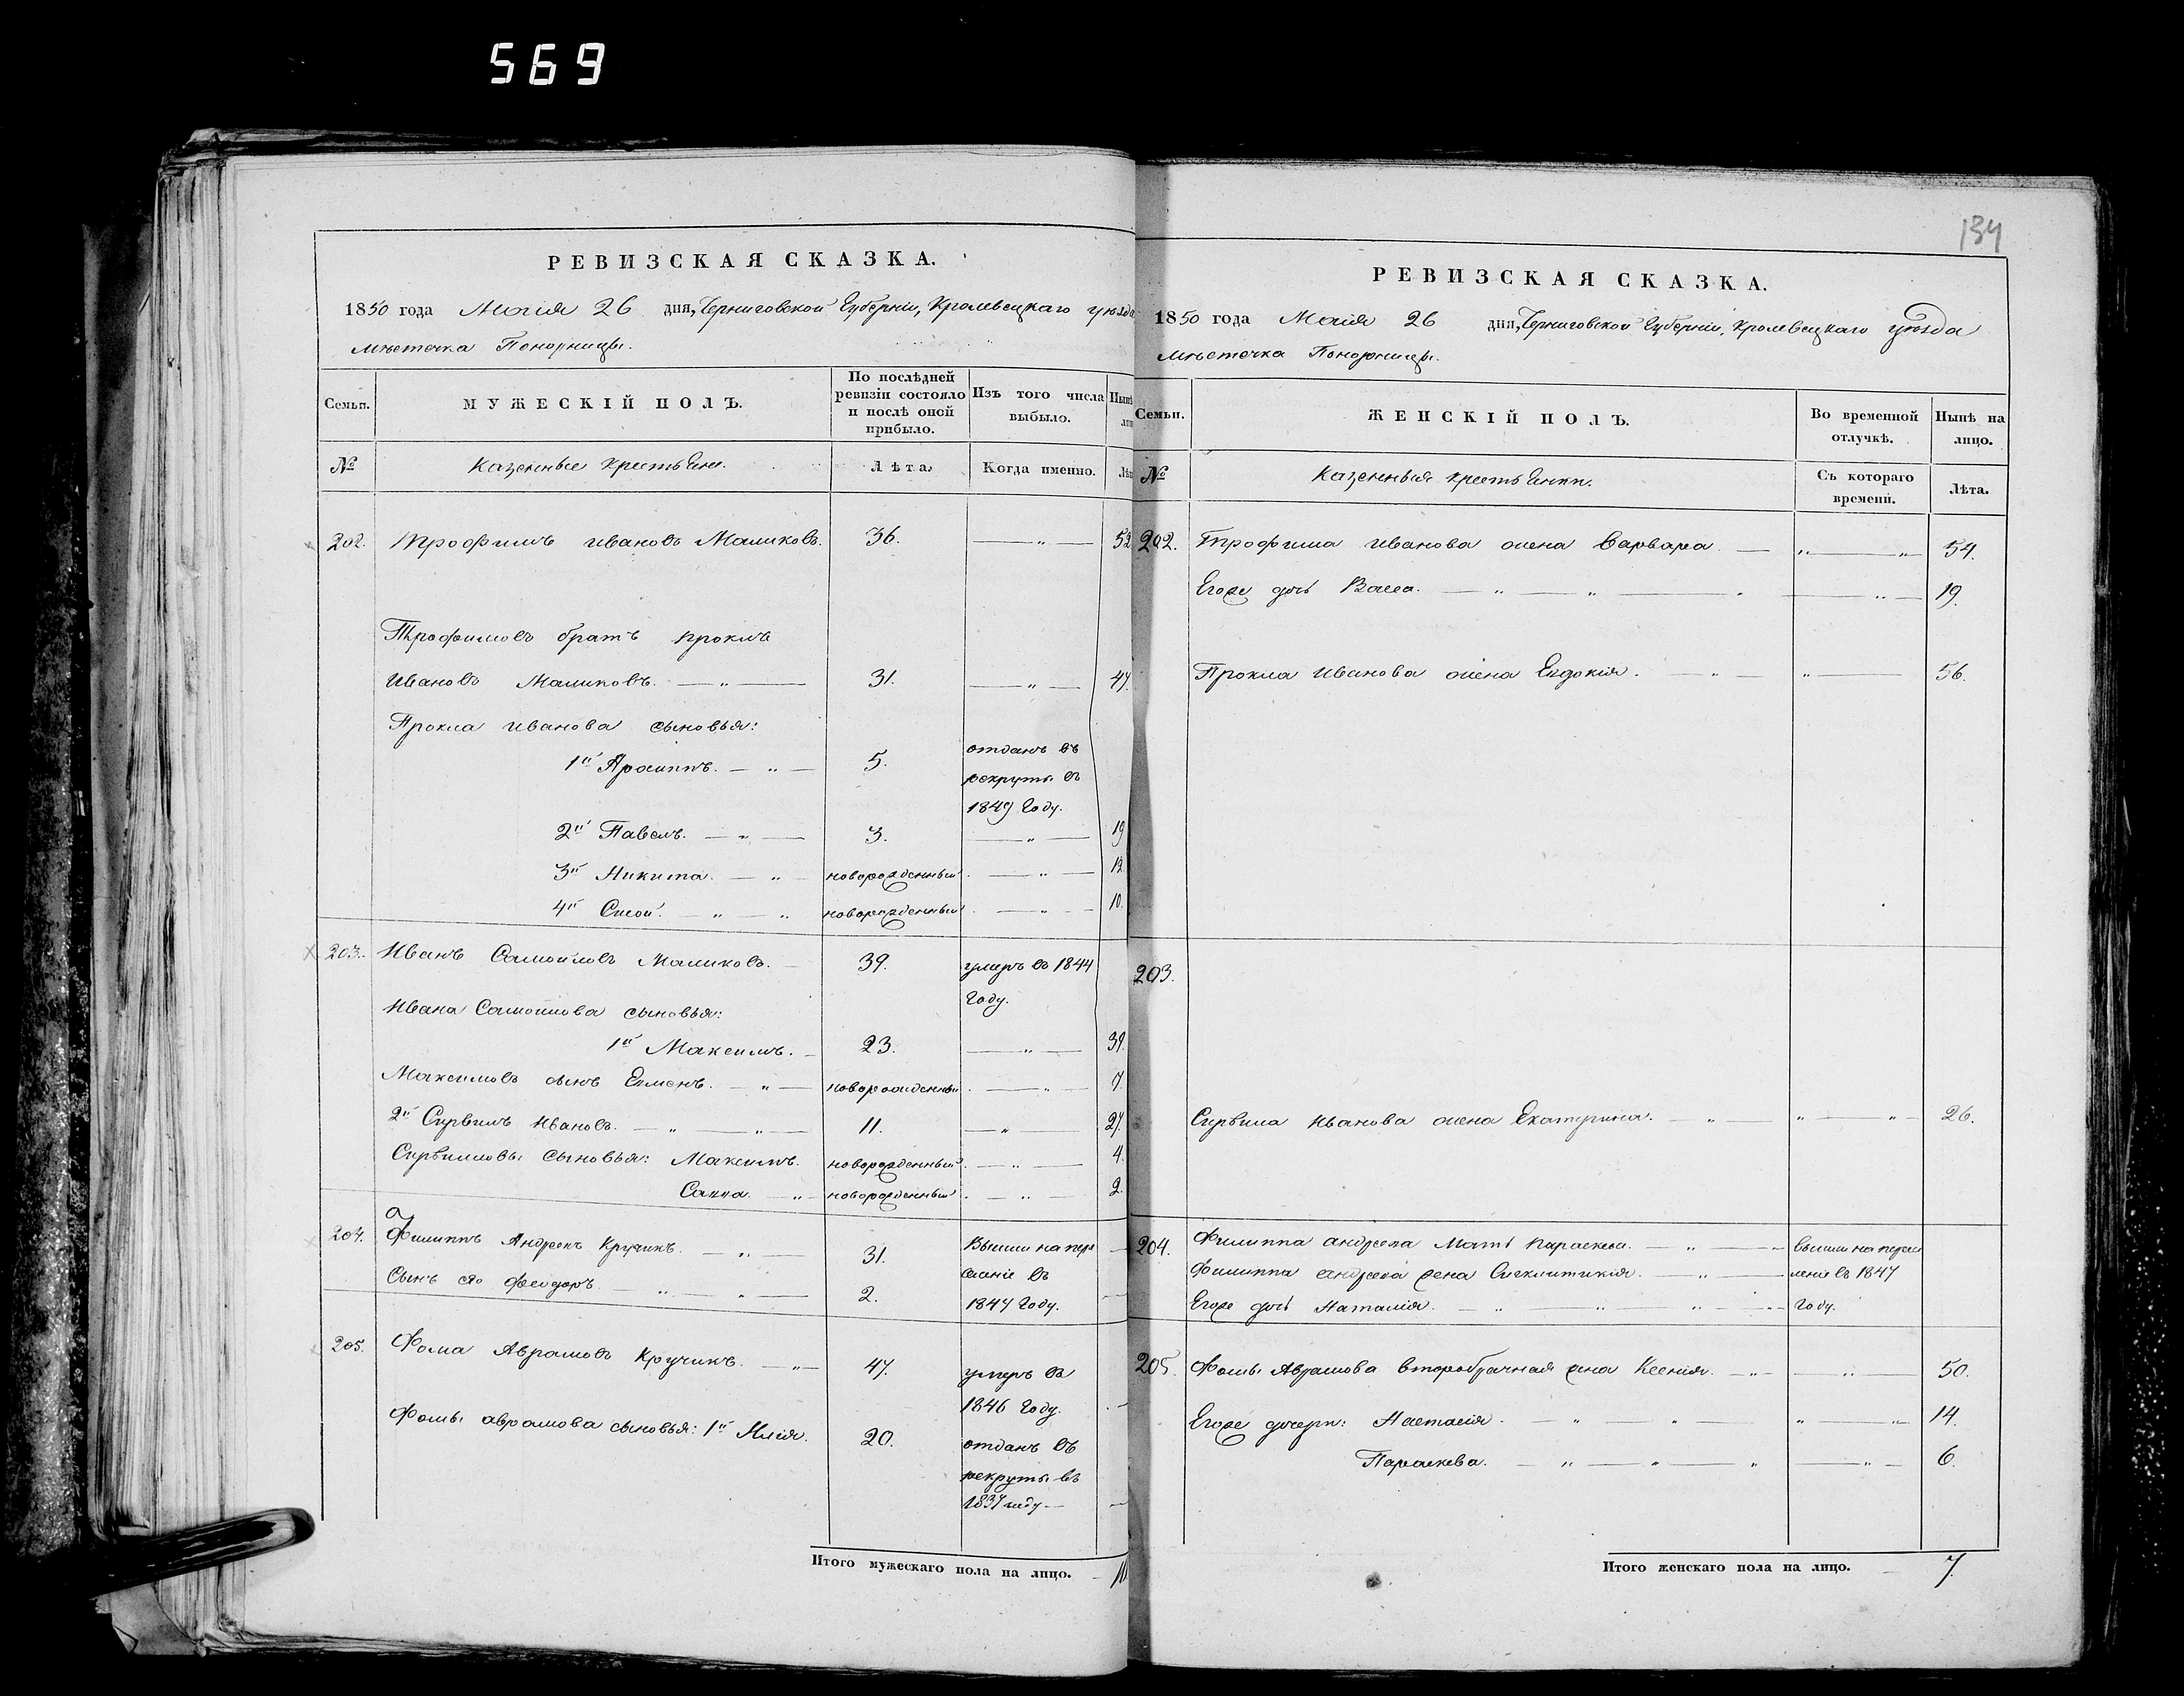 569
РЕВИЗСКАЯ СКАЗКА.
1850 года Маія 26 дня, Черниговской Губерніи, Кролевецкаго уѣзда
мѣстечка Понорницы.
Семьи. МУЖЕСКІЙ ПОЛЪ. По послѣдней ревизіи состояло и послѣ оной прибыло. Изъ того числа выбыло.
№ Казенные крестьяне. Лѣта. Когда именно.
202. Трофимъ Ивановъ Маликовъ. 36. — „ — 52
Трофимовъ братъ Проклъ
Ивановъ Маликовъ. — „ — 31. — „ — 47.
Прокла Иванова сыновья:
1й Архиппъ. — „ — 5. отданъ въ
рекруты въ
1849 году.
2й Павелъ. — „ — 3. — „ — 19
3й Никита. — „ — новорожденный. — „ — 12.
4й Сисой. — „ — „ новорожденный. — „ — 10.
203. Иванъ Самойловъ Маликовъ. — 39. умеръ въ 1844
году.
Ивана Самойлова сыновья:
1й Максимъ. — 23. — „ — 39.
Максимовъ сынъ — „ — новорожденный. — „ — 7.
2й Ивановъ. — „ — „ — 11. — „ — 27.
сыновья: Максимъ. новорожденный. — „ — 4.
Савва. — „ — новорожденный. — „ — 2.
204. Филиппъ Андреевъ Кручикъ. — „ — 31. Вышли на пере
селеніе въ
Сынъ его Феодоръ. „ „ — 2. 1847 году.
205. Фома Аврамовъ Кручикъ. — „ — 47. умеръ въ
1846 году.
Фомы Аврамова сыновья: 1й Илія. 20. отданъ въ
рекруты въ
1837 году. —
Итого мужескаго пола на лицо. — 10
134
РЕВИЗСКАЯ СКАЗКА.
1850 года Маія 26 дня, Черниговской Губерніи, Кролевецкаго уѣзда
мѣстечка Понорницы.
Семьи. ЖЕНСКІЙ ПОЛЪ. Во временной отлучкѣ. Нынѣ на лицо.
№ Казенныя крестьянки. Съ котораго времени. Лѣта.
202. Трофима Иванова жена Варвара — „ — „ 54.
Егоже дочь Васса. — „ — „ — „ — „ — 19.
Прокла Иванова жена Евдокія. — „ — „ — 56.
203.
Иванова жена Екатерина. — „ — „ — „ — 26.
204. Филиппа Андреева мать Параскева. — „ — вышли на пересе
Филиппа Андреева жена — „ — леніе въ 1847
Егоже дочь Наталія. — „ — „ „ — году.
205. Фомы Аврамова второбрачная жена Ксенія. — „ — — „ — 50.
Егоже дочери: Настасія. — „ — „ — „ — „ — 14.
Параскева. — „ — „ — „ — „ — 6.
Итого женскаго пола на лицо. — 7.